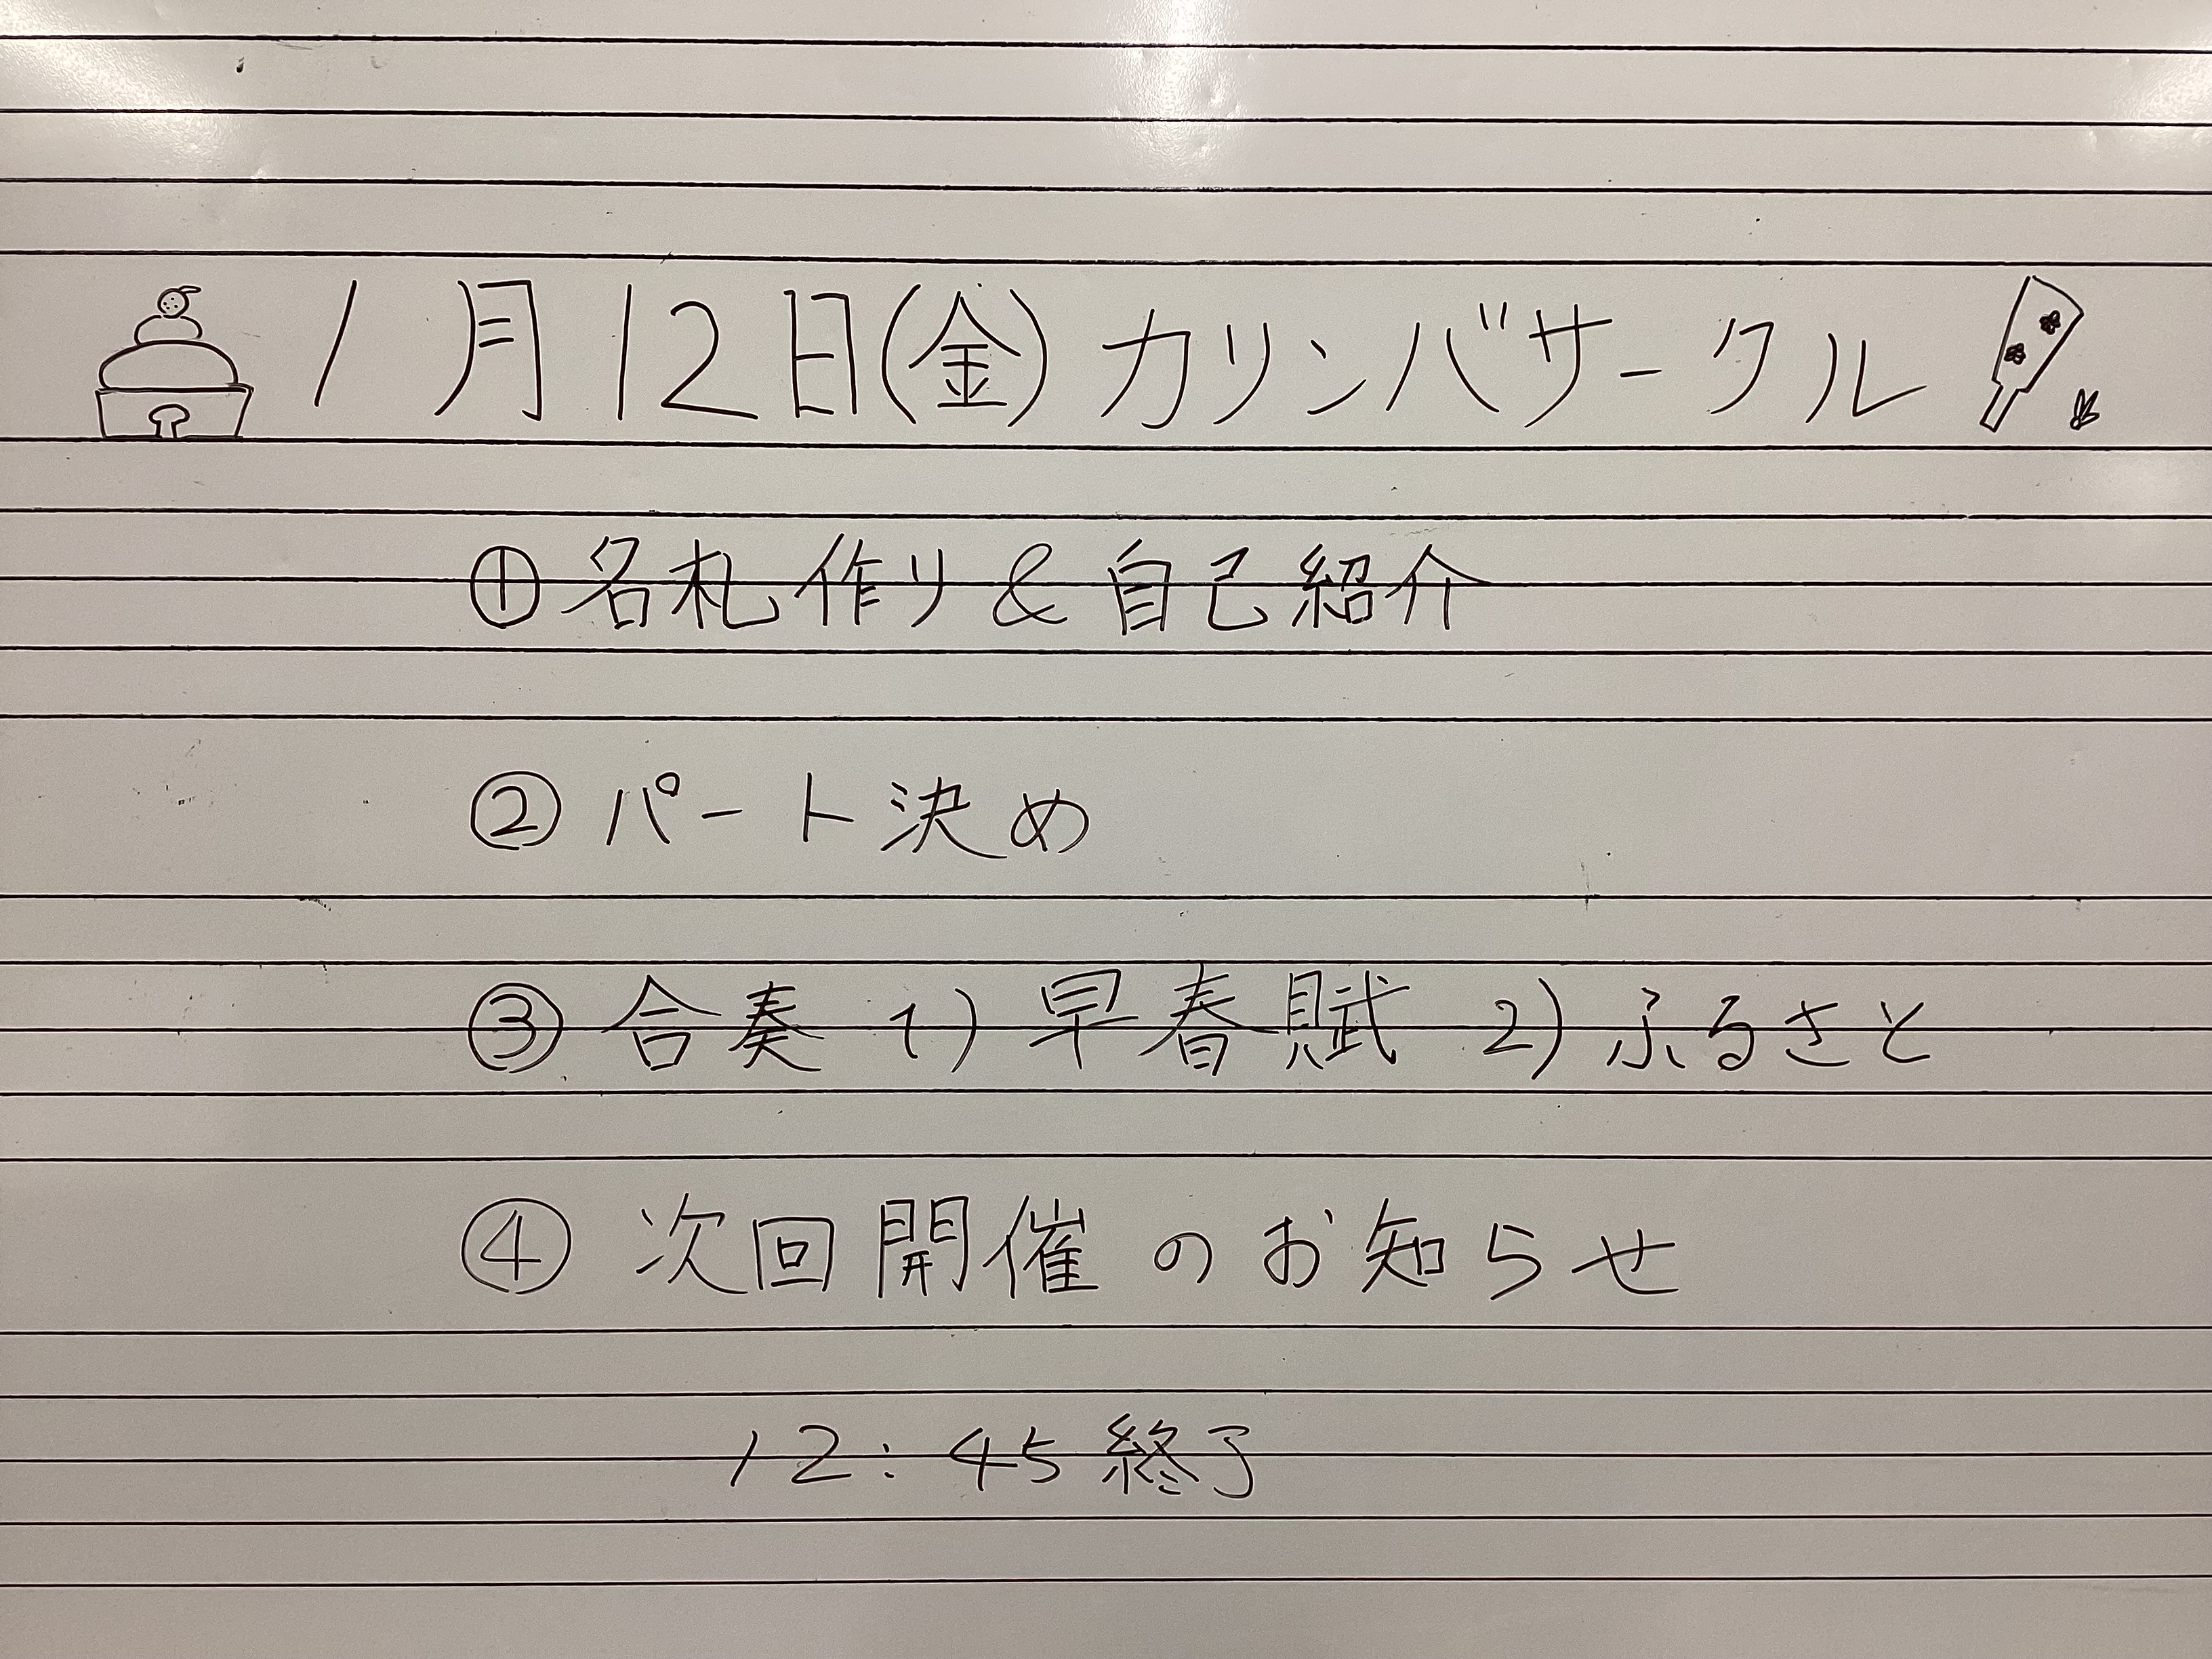 1月12日(金)カリンバサークル
①名札作り&自己紹介
②パート決め
③合奏 1)早春賦 2)ふるさと
④次回開催のお知らせ
12:45終了